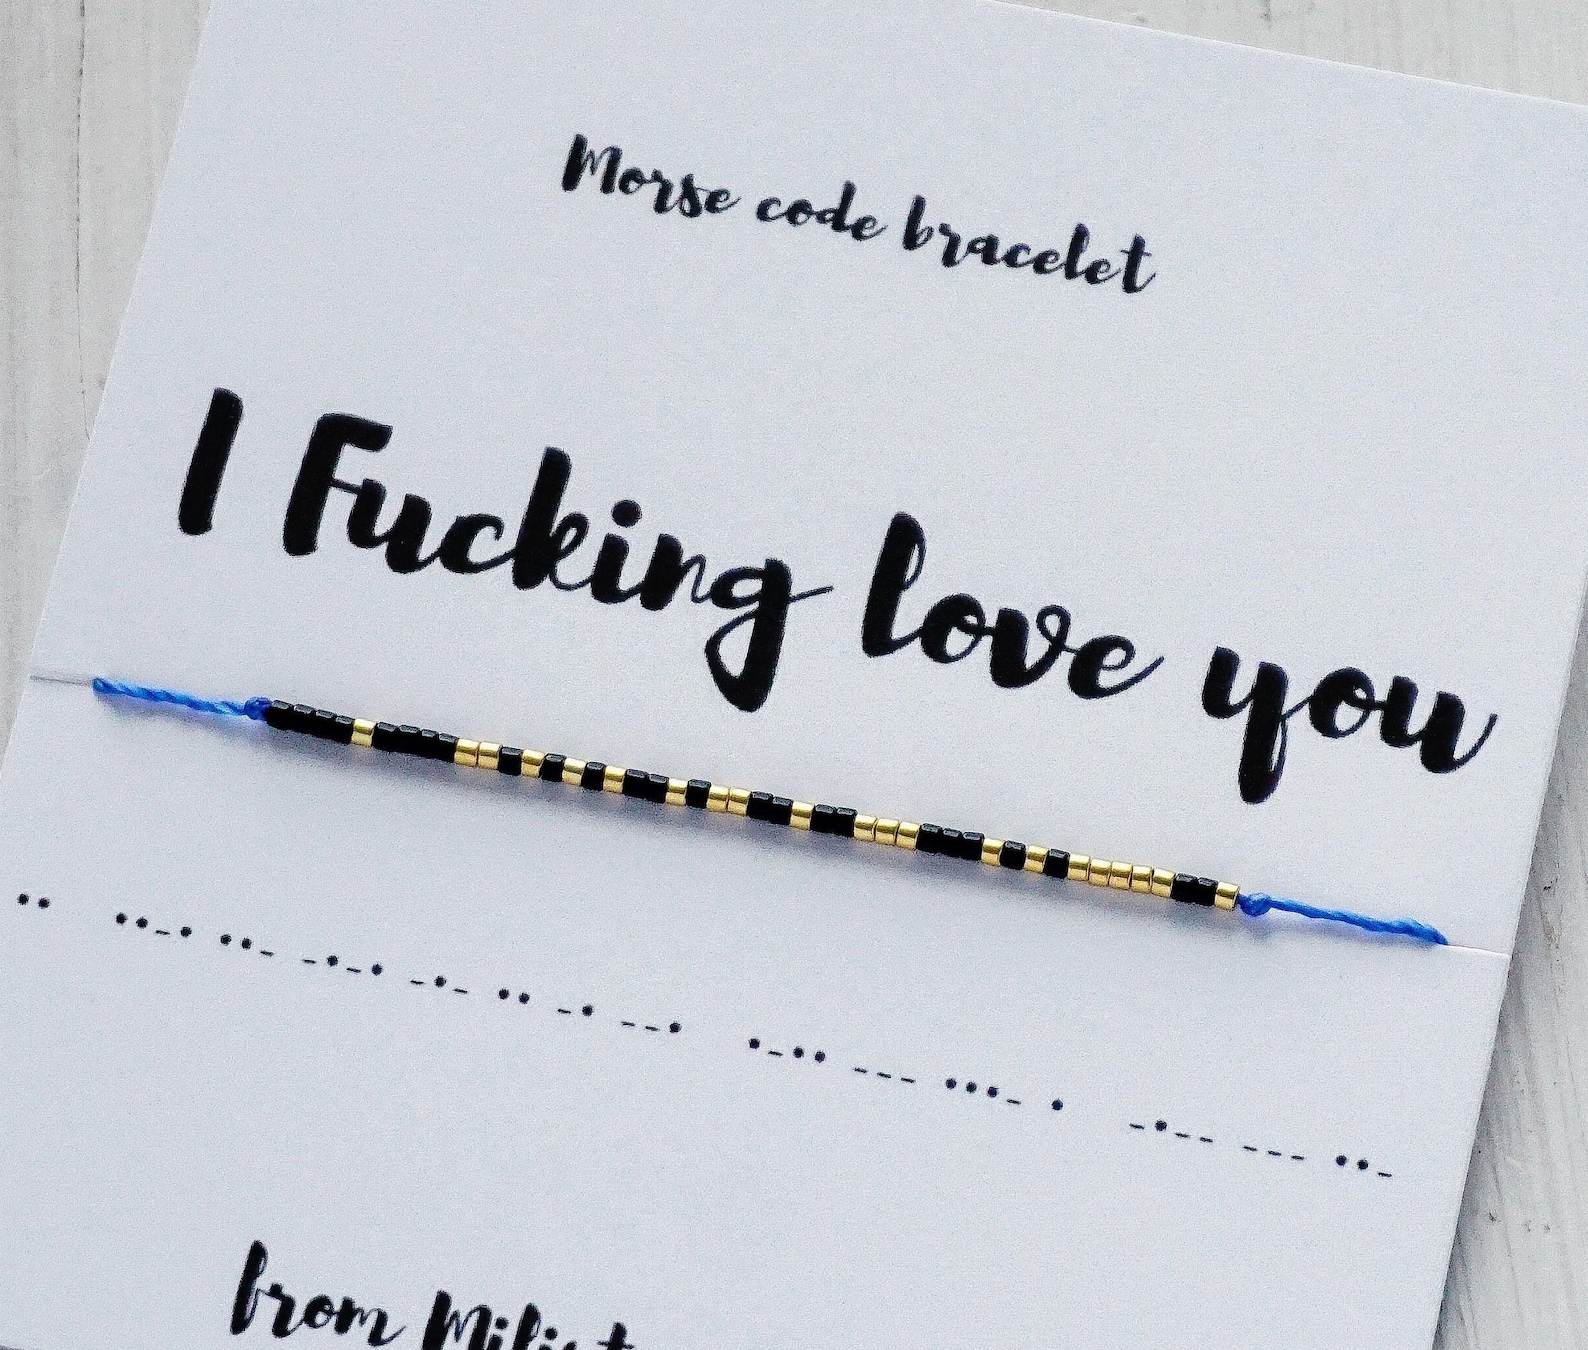 Morse code bracelet
I Fucking love you
•• ••_• ••_ _•_• _•_ •• _• __• •_•• ___ •••_ • _•__ ___ ••_
from